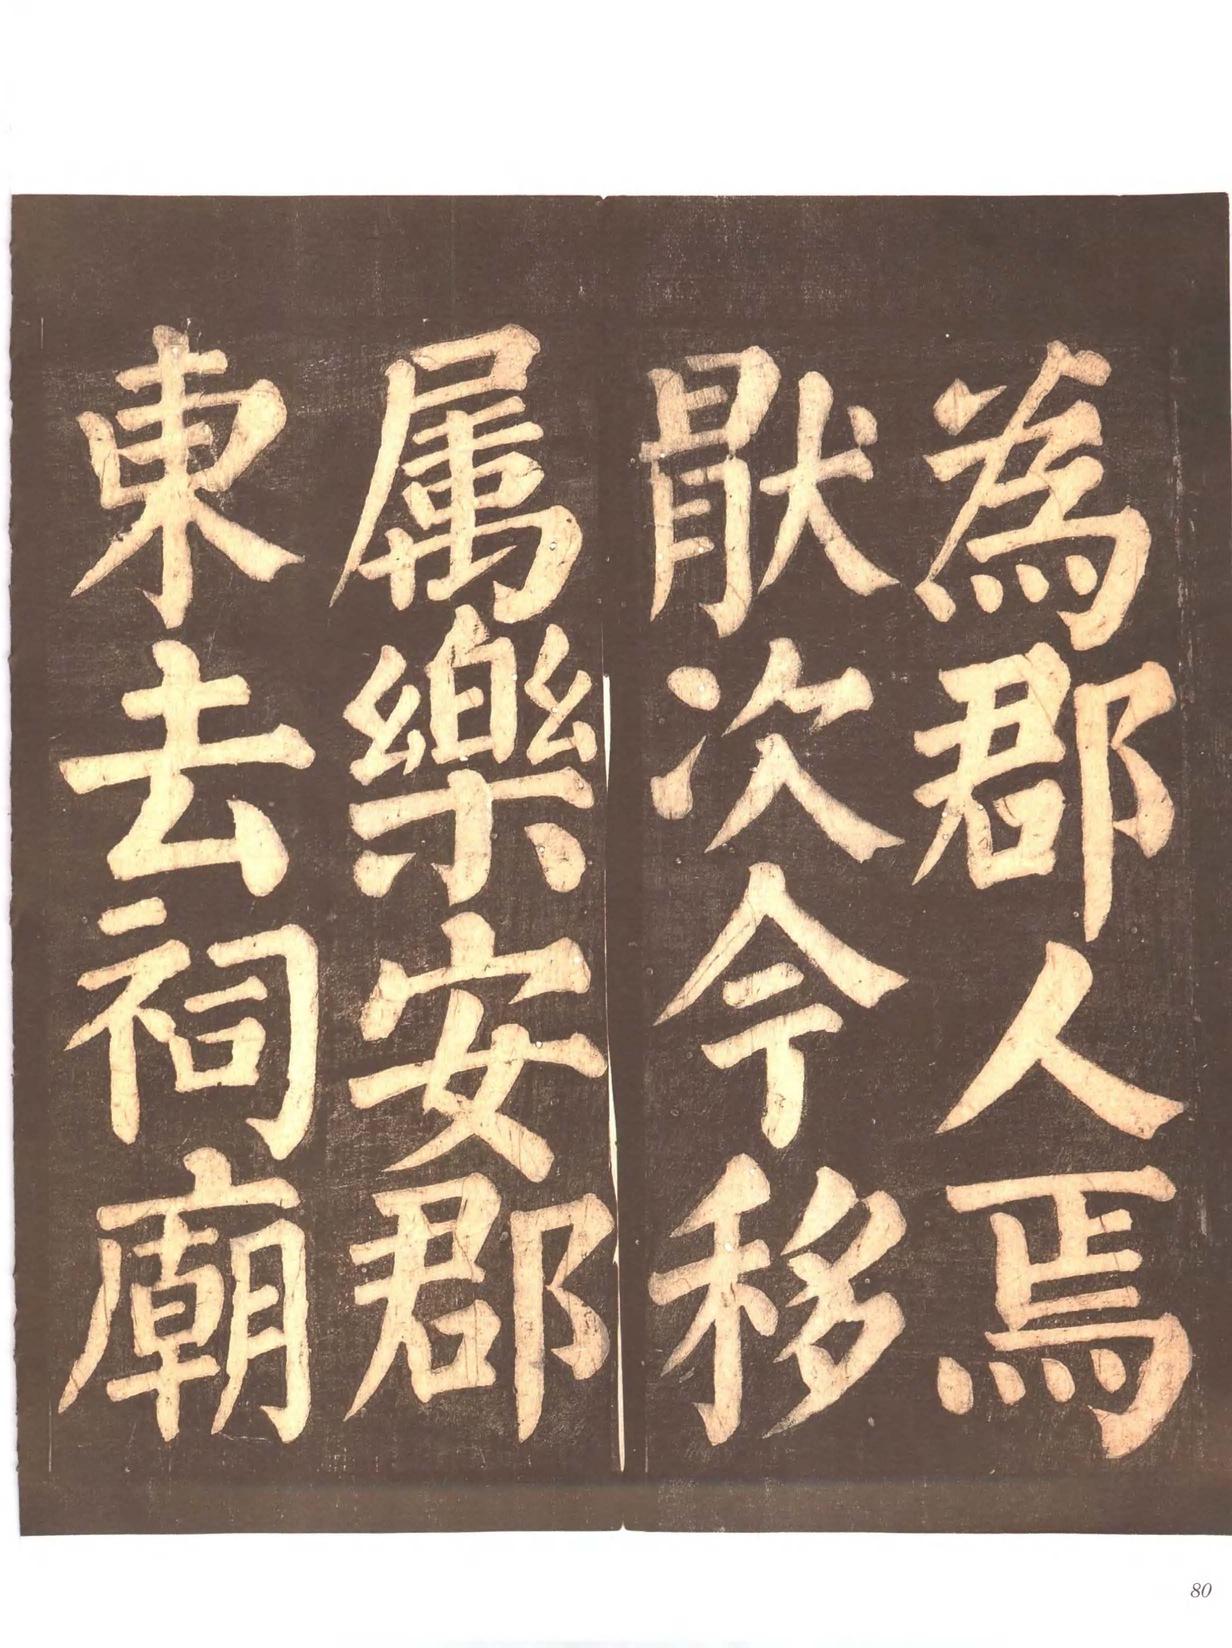 為郡人焉
猒次今移
属樂安郡
東去祠廟
80